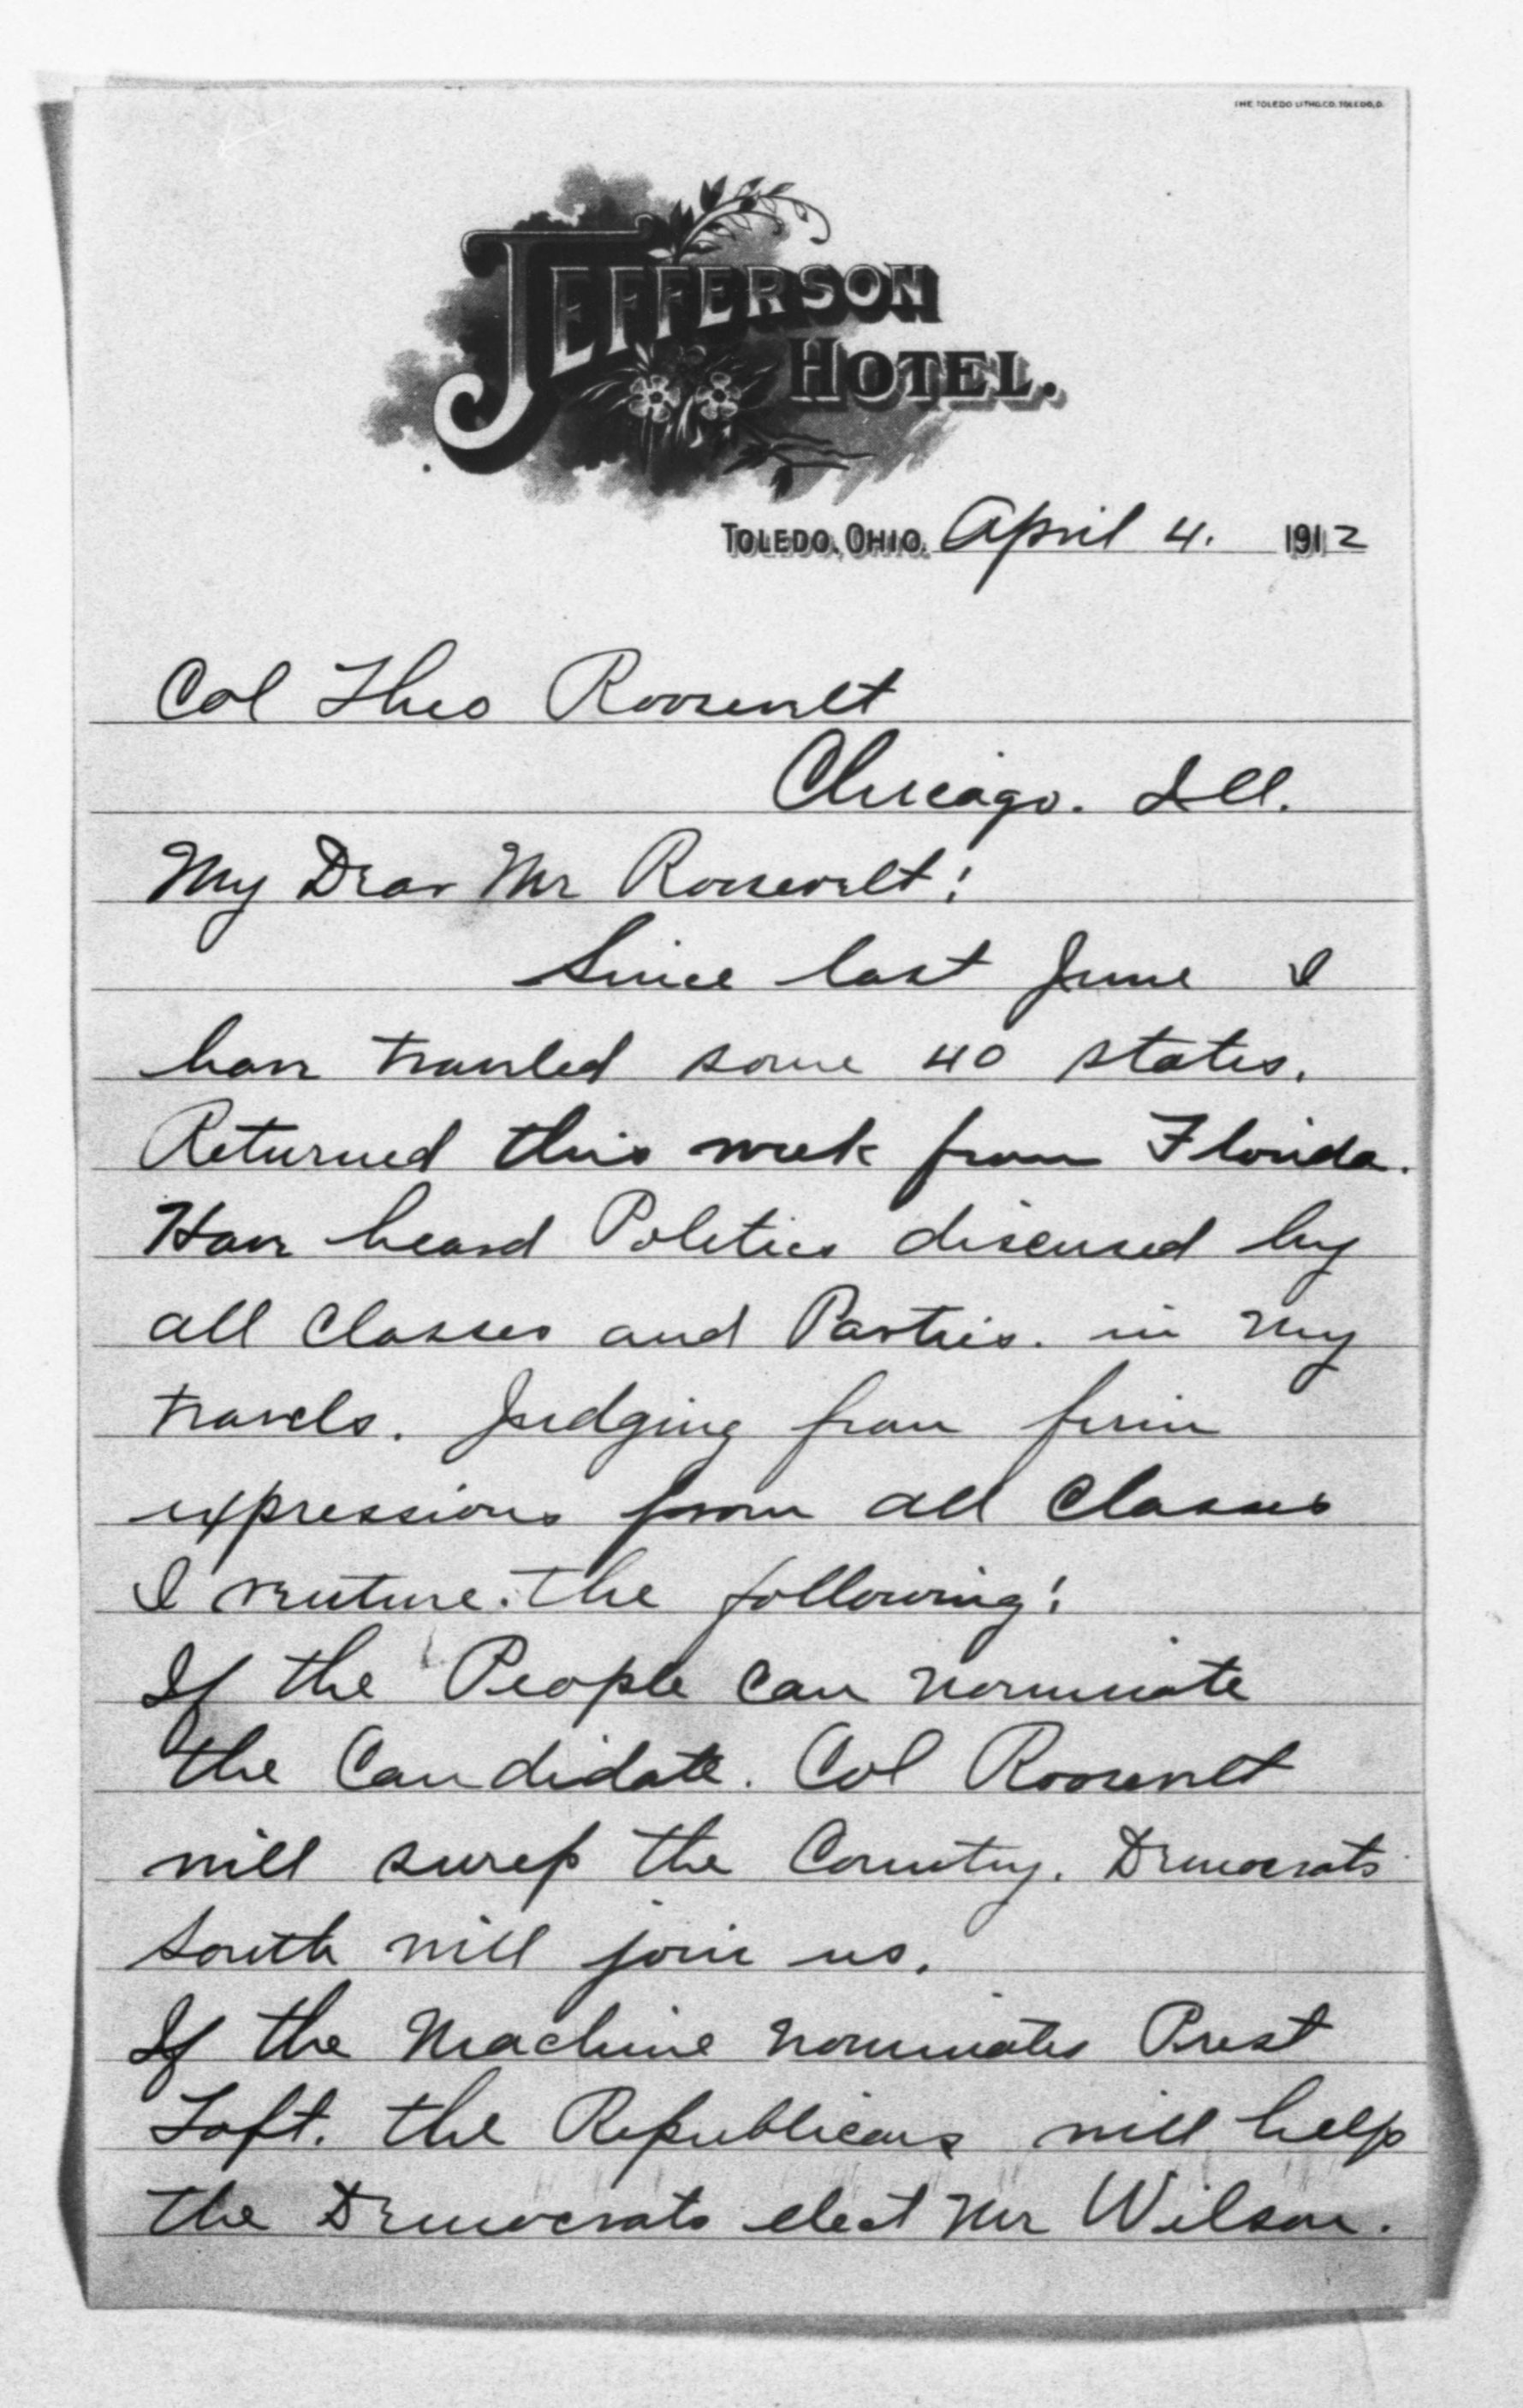 THE TOLEDO LITHO.CO. TOLEDO,O.
JEFFERSON
HOTEL.
TOLEDO, OHIO. April 4. 1912
Col Theo Roosevelt
Chicago. Ill.
My Dear Mr Roosevelt:
Since last June I
have traveled some 40 states.
Returned this week from Florida.
Have heard Politics discussed by
all Classes and Parties. in my
travels. Judging from firm
expressions from all Classes
I venture. the following:
If the People can nominate
the Candidate. Col Roosevelt
will sweep the Country. Democrats
South will join us.
If the Machine nominates Prest
Taft. the Republicans will help
the Democrats elect Mr Wilson.